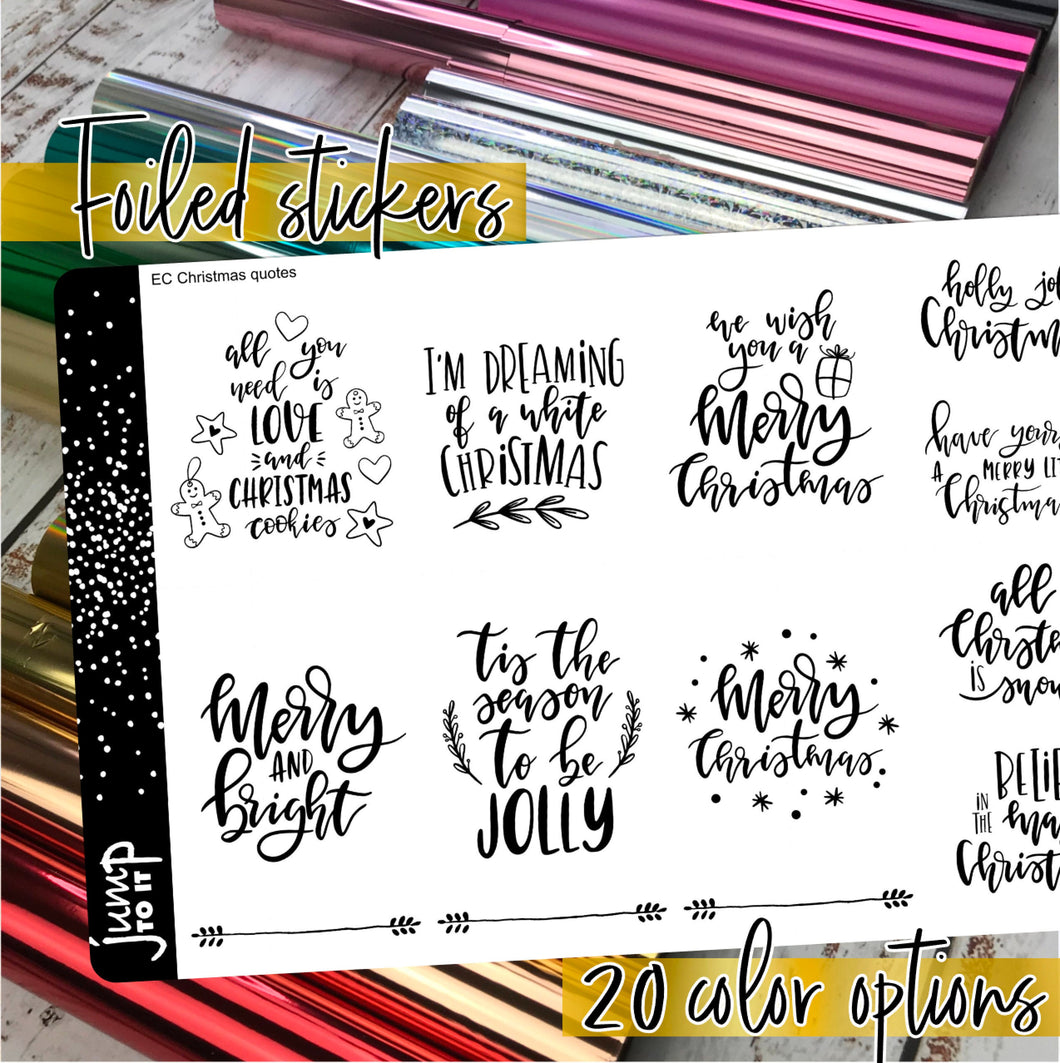 Foiled stickers
EC Christmas quotes
all you
need is
LOVE
and
CHRISTMAS
cookies
I'M DREAMING
of a white
CHRISTMAS
we wish
you a
Merry
Christmas
holly
have your
A MERRY
all
is
IN
THE
Merry
AND
bright
tis the
season
to be
JOLLY
Merry
Christmas
jump
TO IT
20 color options